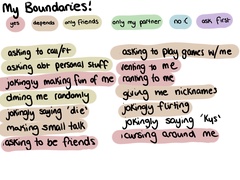 My Boundaries!
yes depends only friends only my partner no :( ask first
asking to call/FT
asking abt personal stuff
jokingly making fun of me
dming me randomly
jokingly saying 'die'
making small talk
asking to be friends
asking to play games w/ me
venting to me
ranting to me
giving me nicknames
jokingly flirting
jokingly saying 'kys'
cursing around me